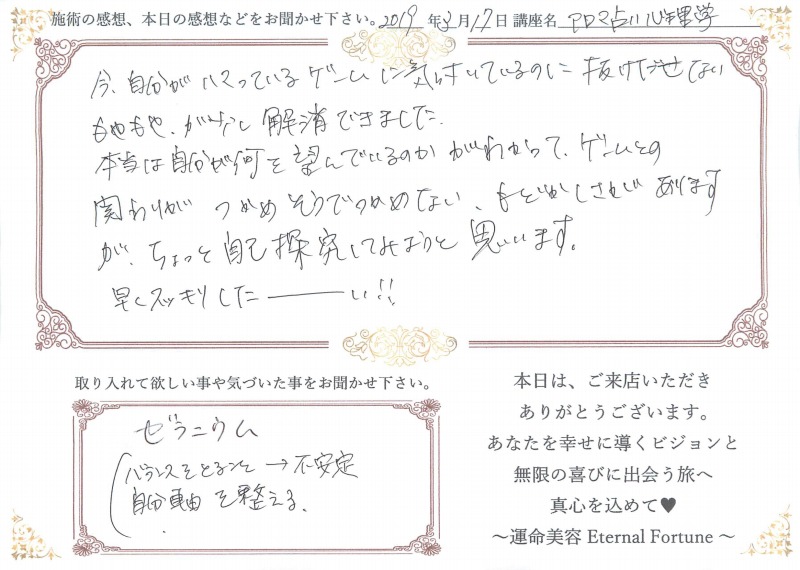 施術の感想、本日の感想などをお聞かせ下さい。2019年3月17日 講座名 アロマ占い心理学
今、自分がハマっているゲームに気付いているのに 抜け出せない
もやもや、が少し 解消できました。
本当は自分が何を望んでいるのか がわかって、ゲームとの
関わりが つかめそうでつかめない、もどかしさがあります
が、ちょっと自己探究してみようと思います。
早くスッキリしたーい!!
取り入れて欲しい事や気づいた事をお聞かせ下さい。
ゼラニウム
バランスをとること → 不安定
自分軸を整える。
本日は、ご来店いただき
ありがとうございます。
あなたを幸せに導くビジョンと
無限の喜びに出会う旅へ
真心を込めて♥
～運命美容 Eternal Fortune～